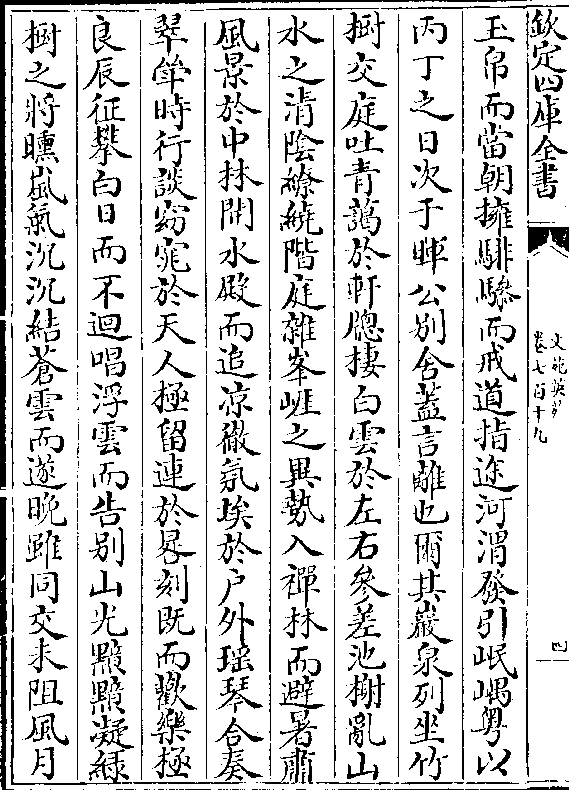 欽定四庫全書
文苑英華
卷七百十九
四
玉帛而當朝擁騑驂而戒道指途河渭發引岷嵎粤以
丙丁之日次于暉公别舍蓋言離也爾其巖泉列坐竹
樹交庭吐青藹於軒牎棲白雲於左右參差池榭亂山
水之清陰繚繞階庭雜峯崕之異勢入禪林而避暑肅
風景於中林開水殿而追凉徹氛埃於户外瑶琴合奏
翠斚時行談窈窕於天人極留連於晷刻既而歡樂極
良辰征攀白日而不迴唱浮雲而告别山光黯黯凝緑
樹之將曛嵐氣沉沉結蒼雲而遂晚雖同交未阻風月